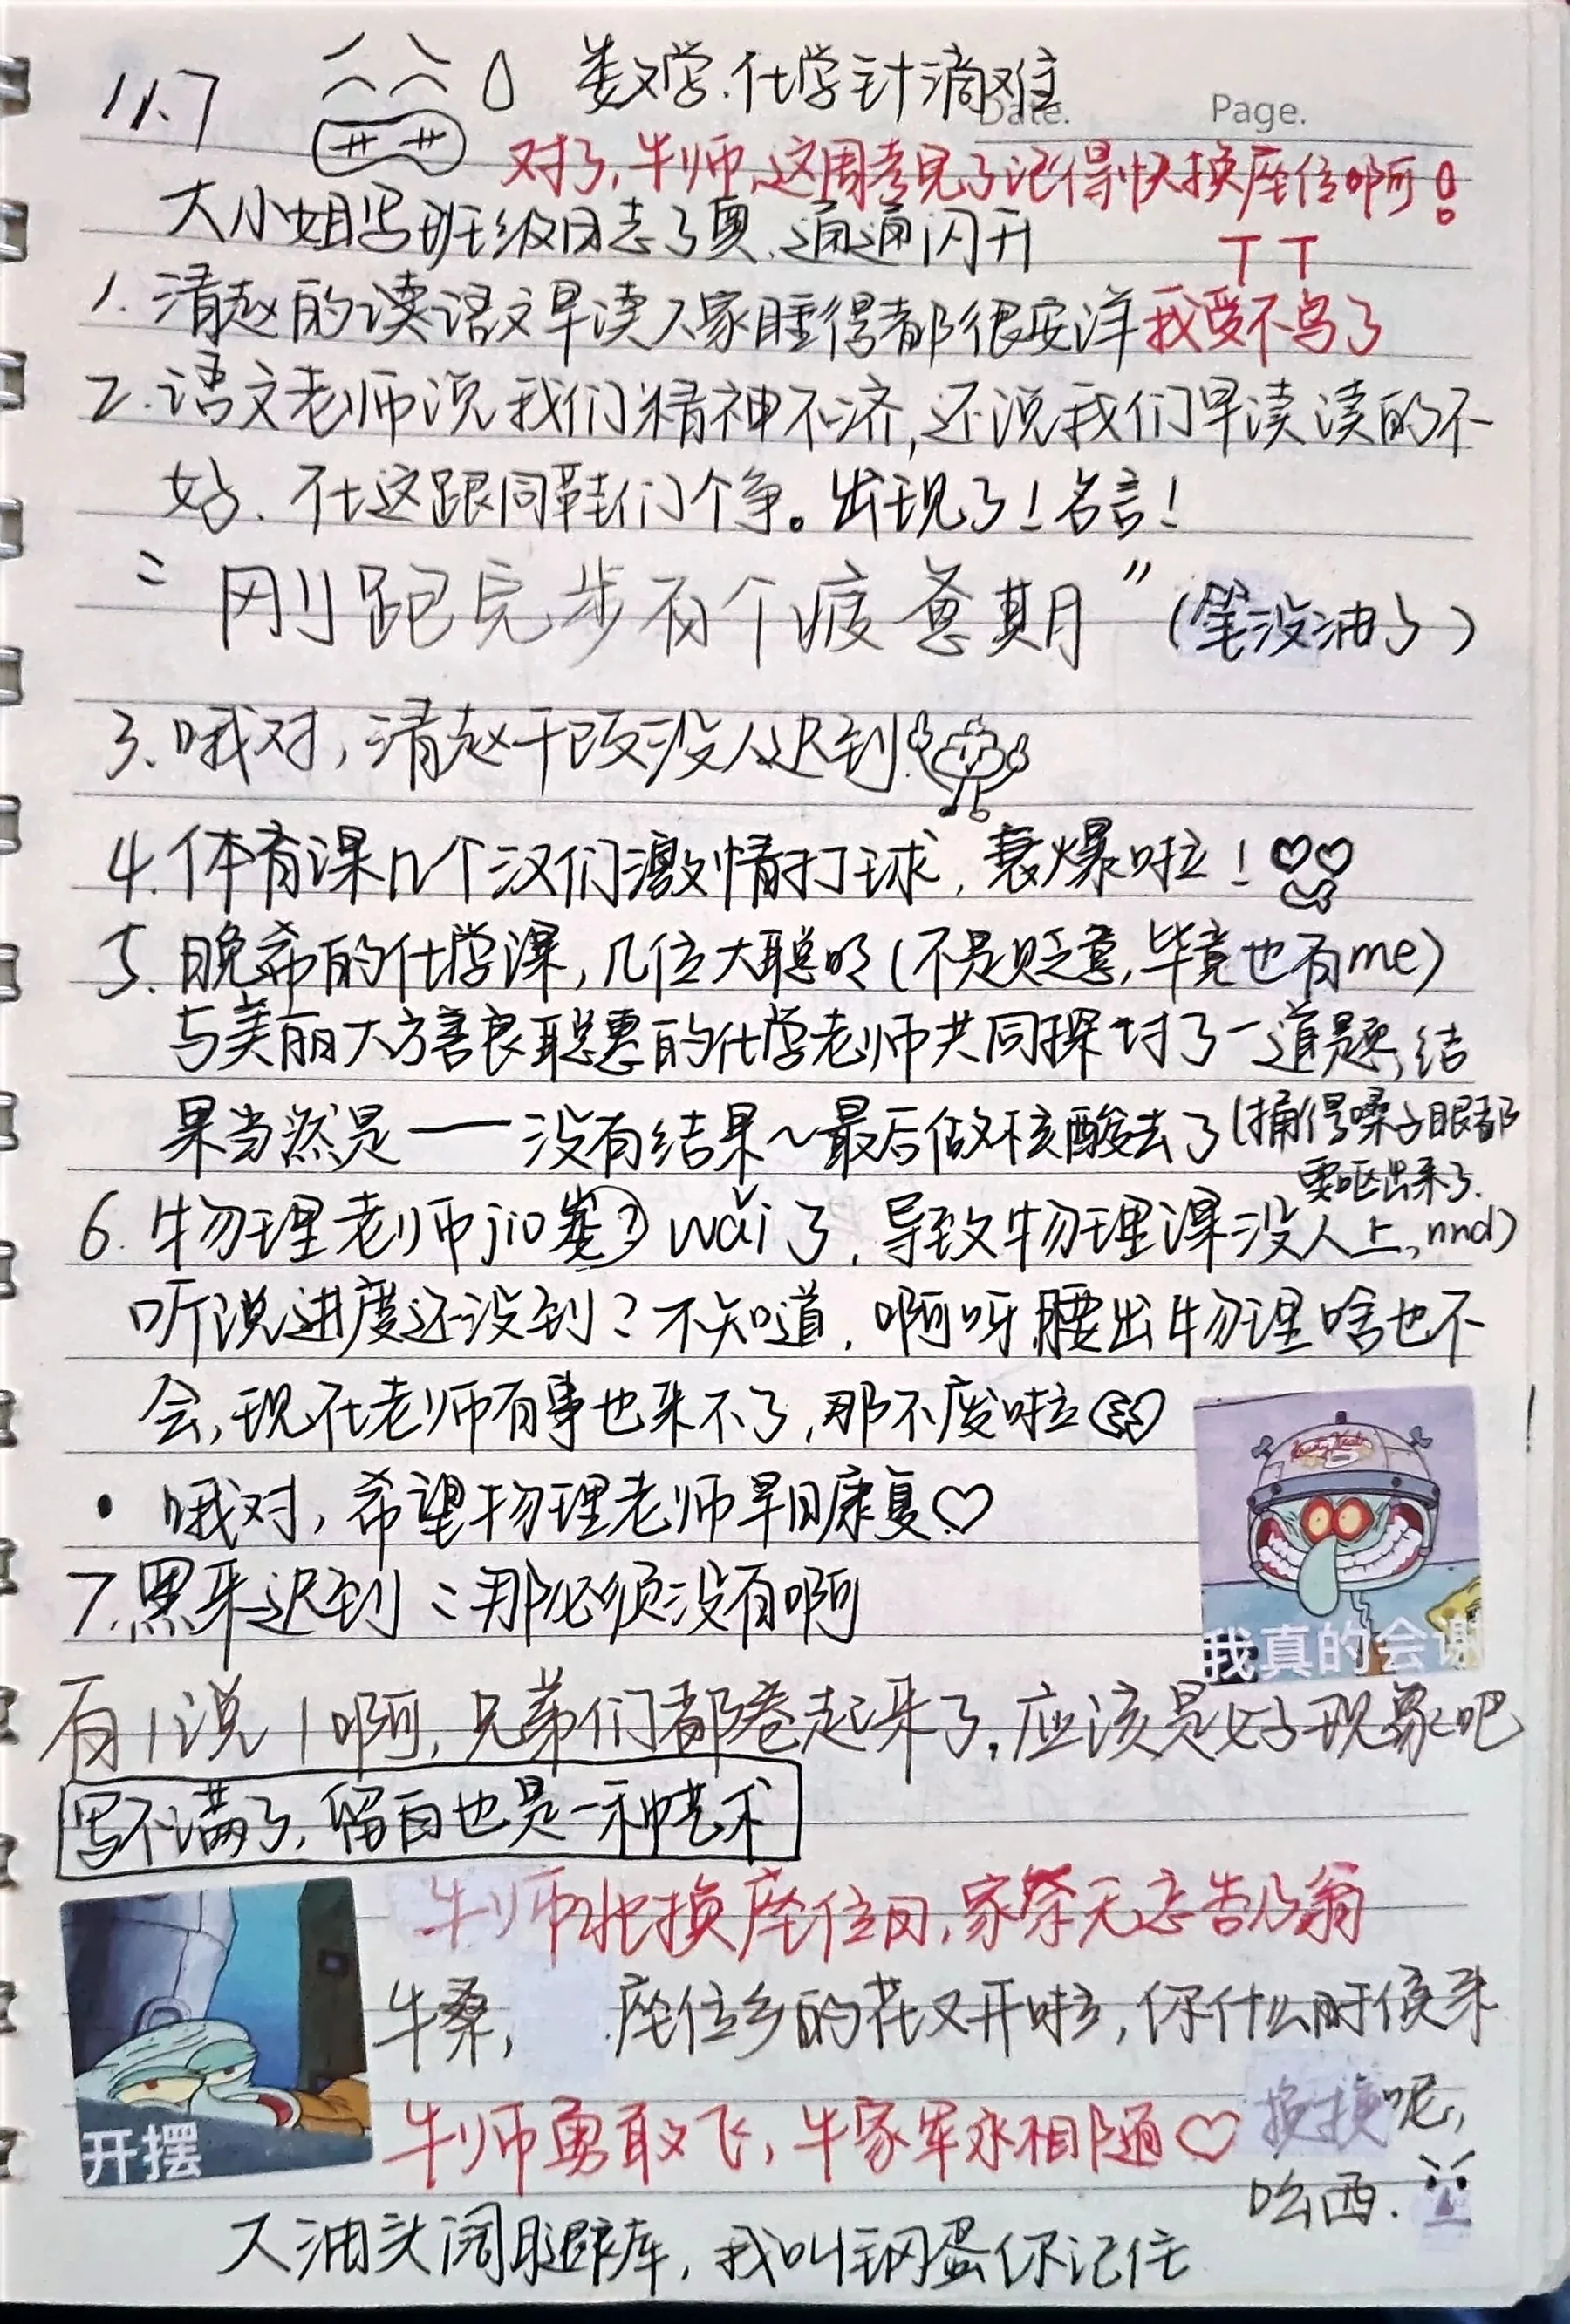 11.7
数学.化学针滴难
Date.
Page.
对了,牛师,这周考完了记得快换座位啊!
TT
大小姐写班级日志了奥,通通闪开
1.清赵的读语文早读人家睡得都很安洋
我受不鸟了
2.语文老师说我们精神不济,还说我们早读读的不
好、在这跟同鞋们个争。出现了!名言!
"刚跑完步有个疲惫期"(笔没油了)
3.哦对,清赵干饭没人迟到
4.体育课几个汉们激情打球,衰爆啦!
5.晚希的化学课,几位大聪明(不是贬意,毕竟也有me)
与美丽大方善良聪惠的化学老师共同探讨了一道题,结
果当然是——没有结果~最后做核酸去了(捅得嗓子眼都
要呕出来了.
nnd)
6.物理老师jio wǎi了,导致物理课没人上,
听说进度还没到?不知道,啊呀,腰出物理啥也不
会,现在老师有事也来不了,那不废啦
•哦对,希望物理老师早日康复♡
7.黑来迟到:那必须没有啊
我真的会谢
有1说1啊,兄弟们都卷起来了,应该是好现象吧
写不满了,留白也是一种艺术
牛师北换座位日,家祭无忘告乃翁
牛桑, 座位乡的花又开啦,你什么时候来
换换呢,
牛师勇敢飞,牛家军永相随♡
哈西.
开摆
大油头阔腿裤库,我叫钢蛋你记住